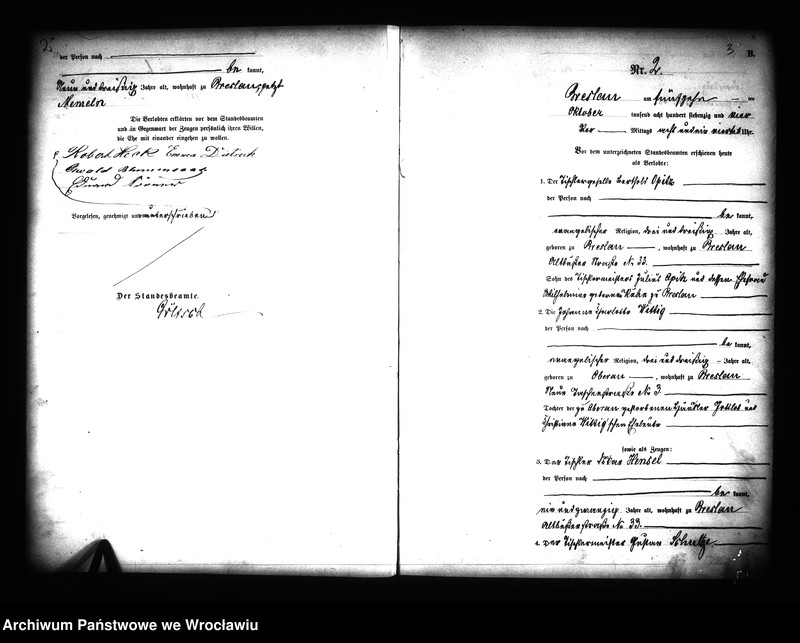 2
der Person nach
be kannt,
Neun und dreißig Jahre alt, wohnhaft zu Breslau, jetzt
Die Verlobten erklärten vor dem Standesbeamten
und in Gegenwart der Zeugen persönlich ihren Willen,
die Ehe mit einander eingehen zu wollen.
Robert Emma Dietrich
Oswald
Vorgelesen, genehmigt und unterschrieben
Der Standesbeamte.
3
B.
Nr. 2.
Breslau am fünfzehn ten
Oktober tausend acht hundert siebenzig und vier
Vor Mittags acht und ein viertel Uhr.
Vor dem unterzeichneten Standesbeamten erschienen heute
als Verlobte:
1. Der Tischlergeselle Berthold Opitz
der Person nach
be kannt,
evangelischer Religion, drei und dreißig Jahre alt,
geboren zu Breslau, wohnhaft zu Breslau
Altbüßer Straße No 33.
Sohn des Tischlermeisters Julius Opitz und dessen Ehefrau
Wilhelmine geborene zu Breslau
2. Die Johanne Charlotte Wittig
der Person nach
be kannt,
evangelischer Religion, drei und dreißig Jahre alt,
geboren zu Obérau, wohnhaft zu Breslau
Neue Taschenstraße No 3.
Tochter der zu Oberau gestorbenen Häusler Gottlob und
Christiane Wittig'schen Eheleute
sowie als Zeugen:
3. Der Tischler Oskar Hensel
der Person nach
be kannt,
ein und zwanzig Jahre alt, wohnhaft zu Breslau
Altbüßerstraße No 33.
4. Der Tischlermeister Gustav Schultze
Archiwum Państwowe we Wrocławiu